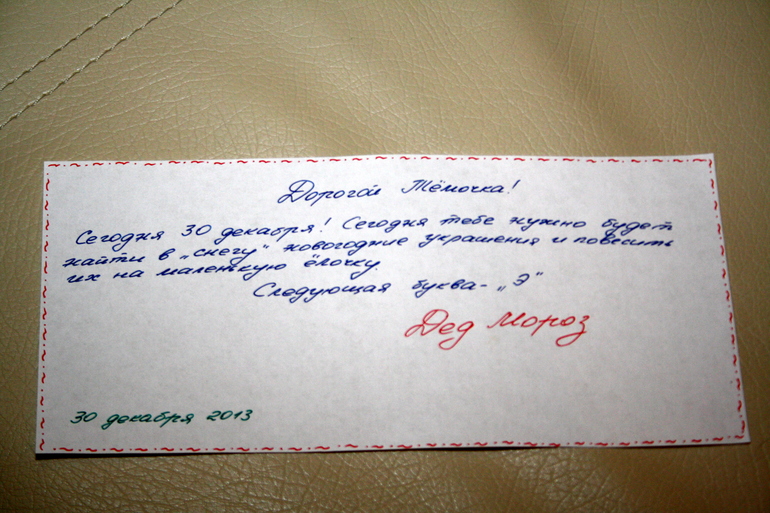 Дорогой Тёмочка!
Сегодня 30 декабря! Сегодня тебе нужно будет
найти в „снегу“ новогодние украшения и повесить
их на маленькую ёлочку.
Следующая буква - „Э“
Дед Мороз
30 декабря 2013